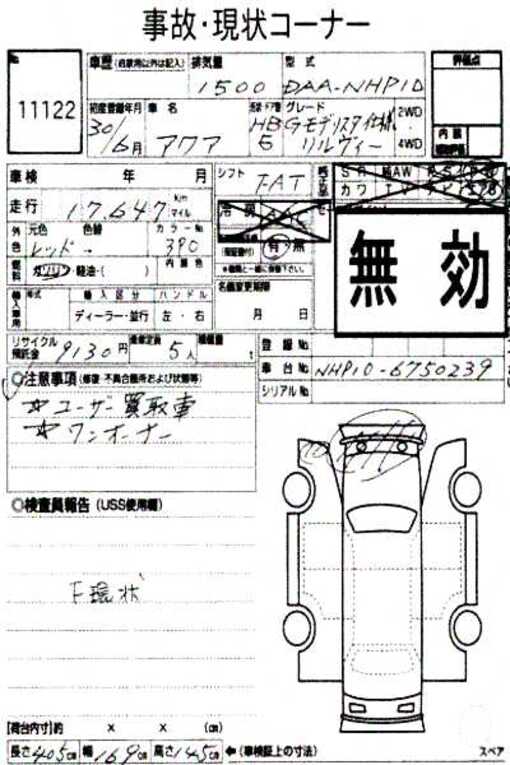 事故・現状コーナー
No. 11122
車歴(自家用以外は記入) 排気量 型式 評価点
1500 DAA-NHP10
初度登録年月 車名 形状・ドア数 グレード
30/6月 アクア HB 5 Gモデリスタ仕様 リルヴィー 2WD 4WD
内装
車検 年 月 シフト FAT
SR 革AW
カワ TV ナビ
走行 17,647 Km マイル
冷房
外色 元色 色替 カラーNo.
レッド → 3P0
有・無
無効
燃料 ガソリン・軽油・( ) 内装色
名義変更期限
月 日
輸入車用 年式 輸入区分 ハンドル
ディーラー・並行 左・右
リサイクル預託金 9130円 乗車定員 5人 積載量 t
登録No.
車台No. NHP10-6750239
シリアルNo.
◎注意事項(修復・不具合箇所および状態等)
☆ユーザー買取車
☆ワンオーナー
◎検査員報告(USS使用欄)
F現状
[荷台内寸]約 × × (cm)
長さ405cm 幅169cm 高さ145cm ←(車検証上の寸法)
スペア